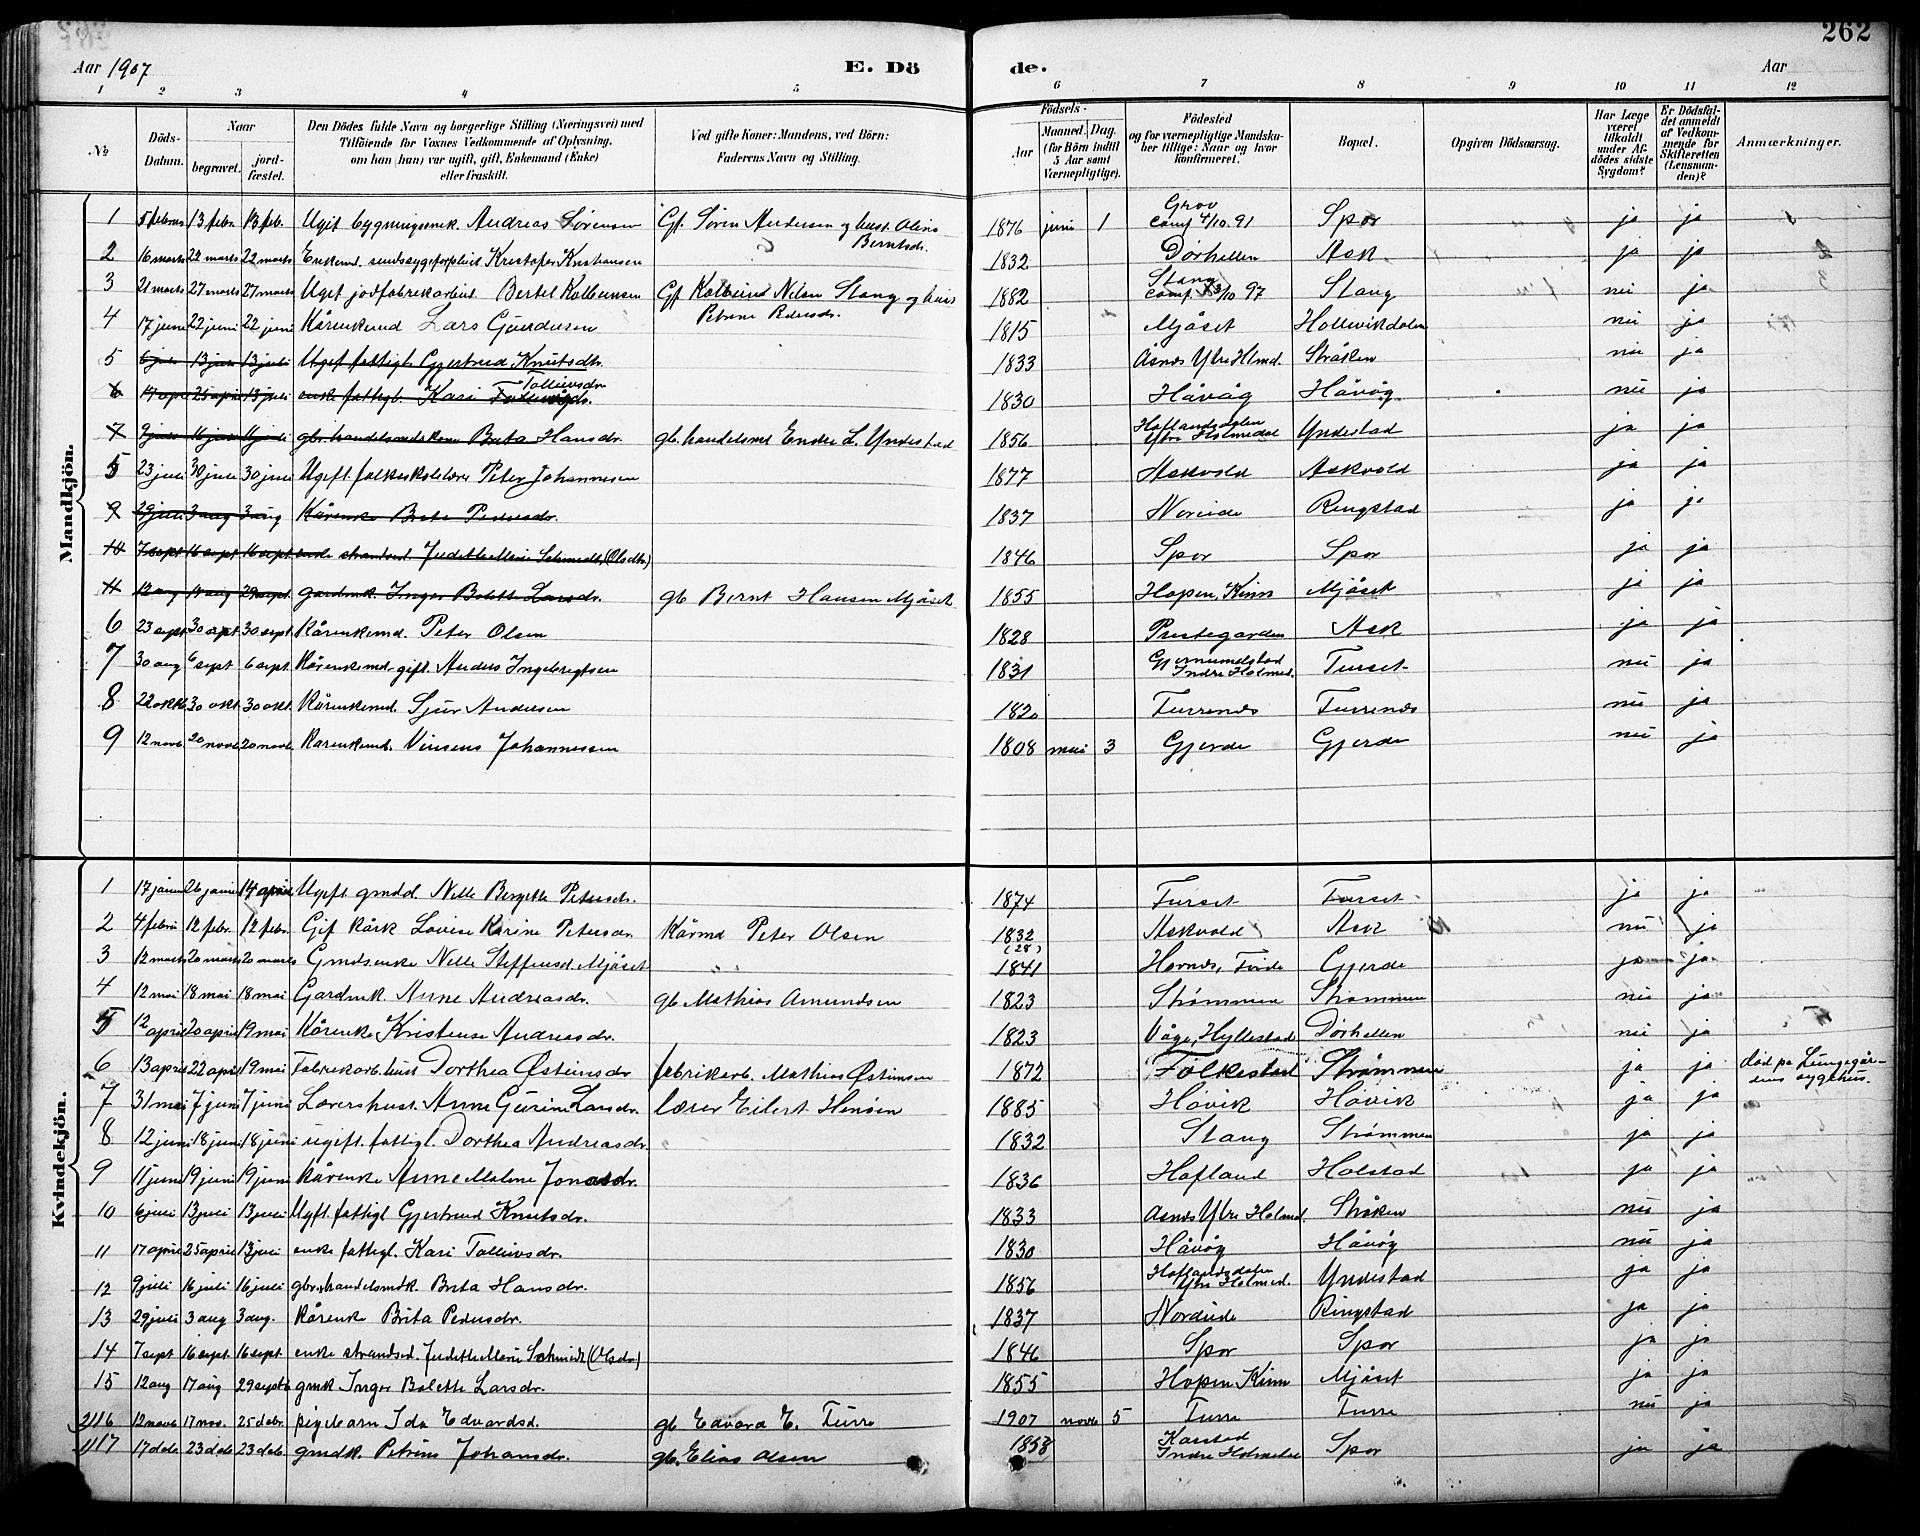 262
Aar 1907
E. Dö de.
Aar
1 2 3 4 5 6 7 8 9 10 11 12
№
Döds-Datum.
Naar
begravet.
jord-fæstet.
Den Dödes fulde Navn og borgerlige Stilling (Næringsvei) med
Tilföiende for Voxnes Vedkommende af Oplysning,
om han (hun) var ugift, gift, Enkemand (Enke)
eller fraskilt.
Ved gifte Koner: Mandens, ved Börn:
Faderens Navn og Stilling.
Födsels-
Aar
Maaned. Dag.
(for Börn indtil
5 Aar samt
Værnepligtige).
Födested
og for værnepligtige Mandska-
ber tillige: Naar og hvor
konfirmeret.
Bopæl.
Opgiven Dödsaarsag.
Har Læge
været
tilkaldt
under Af-
dödes sidste
Sygdom?
Er Dödsfal-
det anmeldt
af Vedkom-
mende for
Skifteretten
(Lensman-
den)?
Anmærkninger.
Mandkjön.
1 5 febr 13 febr. 13 feb. Ugift bygningssnik. Andreas Sørensen Gf. Søren Andersen og hust. Oline Berntsdr. 1876 juni 1 Grov conf 4/10 91 Spor ja ja
2 16 marts 22 marts 22 marts Enkemd. sindssygeforpleiet Kristofer Kristiansen 1832 Dørhellen Ask ja ja
3 21 marts 27 marts 27 marts Ugift jodfabrekarbeid. Bertel Kolbeinsen Gf. Kolbeind Nilsen Stang og hust Petrine Pedersdr. 1882 Stang conf 3/10 97 Stang nei ja
4 17 juni 22 juni 22 juni Kårenkemd Lars Gjerdesen 1815 Mjåset Hollevikdalen nei ja
5 6 juli 13 juli 13 juli Ugift fattigl. Gjertrud Knutsdtr. 1833 Åsnes Ytre Hlmd. Stråken nei ja
6 17 april 25 april 13 juli enke fattigl. Kari Tolleivsdr. 1830 Håvåg Håvåg nei ja
7 9 juli 16 juli 16 juli gbr. handelsmdskone Brita Hansdr. gb. handelsmd Endre L. Yndestad 1856 Hoflandsdalen Ytri Holmedal Yndestad ja ja
5 23 juli 30 juli 30 juli Ugift. folkeskolelærer Peter Johannesen 1877 Askvold Askvold ja ja
9 29 juli 3 aug 3 aug Kårenke Brita Pedersdr. 1837 Noreide Ringstad ja ja
10 7 sept 16 sept 16 sept enke strandsed Judithe Marie Schmidt (Olsdtr) 1846 Spor Spor ja ja
11 12 aug 17 aug 29 sept. gardmk. Inger Bolette Larsdr. gb Bernt Hansen Mjåset 1855 Hopen, Kinn Mjåset ja ja
6 23 sept 30 sept 30 sept. Kårenkemd. Peter Olsen 1828 Prestegarden Ask ja ja
7 30 aug 6 sept 6 sept. Kårenkemd. gift. Anders Ingebrigtsen 1831 Gjermundstad Indre Holmed. Furset nei ja
8 22 okt 30 okt 30 okt. Kårenkemd. Sjur Andersen 1820 Furrenes Furrenes nei ja
9 12 novb 20 novb 20 novb. Kårenkemd. Vinsens Johannessen 1808 mai 3 Gjerde Gjerde nei ja
Kvindekjön.
1 17 januar 26 januar 14 april Ugift gmdd. Nille Bergitte Petersdr. 1874 Furset Furset ja ja
2 4 febru 12 febr. 12 febr. Gift kårk Lovise Karine Petersdr Kårmd Peter Olsen 1832 (28) Askvold Ask nei ja
3 12 marts 20 marts 20 marts Gmdsenke Nille Steffensd. Mjåset 1841 Hornes, Førde Gjerde ja ja
4 12 mai 18 mai 18 mai Gardmk. Anne Andreasdr. gb Mathias Amundsen 1823 Strømmen Strømmen nei ja
5 12 april 20 april 19 mai Kårenke Kristense Andreasdr. 1823 Våge, Hyllestad Dørhellen nei ja
6 13 april 22 april 19 mai Fabrekarb. hust Dorthea Østeinsdr fabrikarb. Mathias Østeinsen 1872 Folkestad Strømmen ja ja død på Lungegår-dens sygehus.
7 31 mai 7 juni 7 juni Lærershust. Anne Gurine Larsdr. lærer Eilert Hensen 1885 Håvik Håvik ja ja
8 12 juni 18 juni 18 juni ugift fattigl. Dorthea Andreasdr. 1832 Stang Strømmen ja ja
9 11 juni 19 juni 19 juni Kårenke Anne Malene Jonasdr. 1836 Hofland Holstad ja ja
10 6 juli 13 juli 13 juli Ugft. fattigl Gjertrud Knutsdr. 1833 Åsnes Ytre Holmd. Stråken nei ja
11 17 april 25 april 13 juli enke fattigl. Kari Tolleivsdr. 1830 Håvåg Håvåg nei ja
12 9 juli 16 juli 16 juli gbr. handelsmdk Brita Hansdr. 1856 Hoflandsdalen Ytri Holmed. Yndestad ja ja
13 29 juli 3 aug 3 aug. Kårenke Brita Pedersdr. 1837 Nordeide Ringstad ja ja
14 7 sept 16 sept. 16 sept. enke strandsed. Judithe Marie Schmidt (Olsdr) 1846 Spor Spor ja ja
15 12 aug 17 aug 29 septb gmk Inger Bolette Larsdr. 1855 Hopen Kinn Mjåset ja ja
16 12 novb 17 nov. 25 debr. pigebarn Ida Edvardsd. gb Edvard E. Furre 1907 novb 5 Furre Furre nei ja
17 17 deb 23 deb 23 deb. gmdk. Petrine Johansdr. gb. Elias Olsen 1858 Karstad Indre Holmedal Spor ja ja